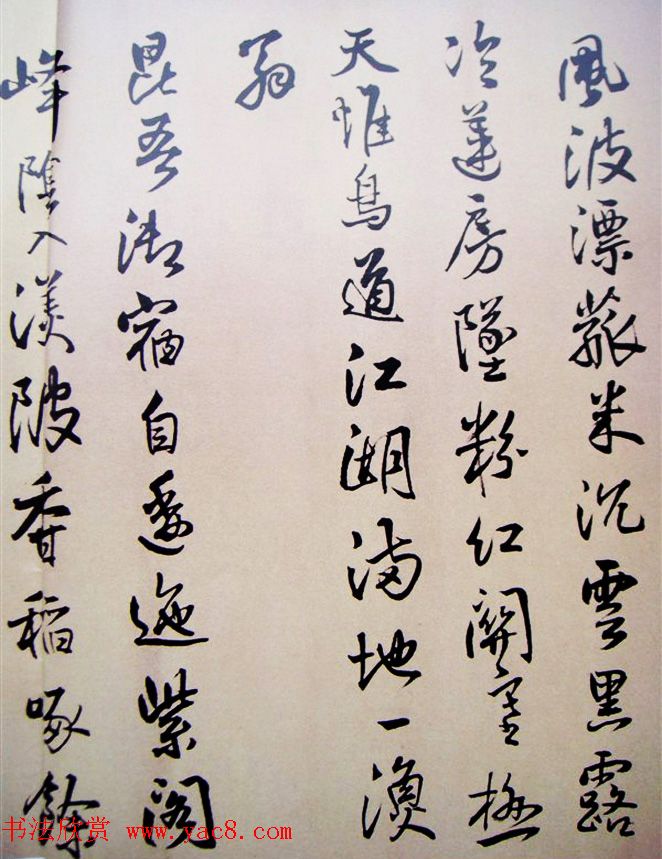 風波漂菰米沉雲黑露
冷蓮房墜粉紅關塞極
天惟鳥道江湖滿地一漁
翁
昆吾御宿自逶迤紫閣
峰陰入渼陂香稻啄餘
书法欣赏 www.yac8.com